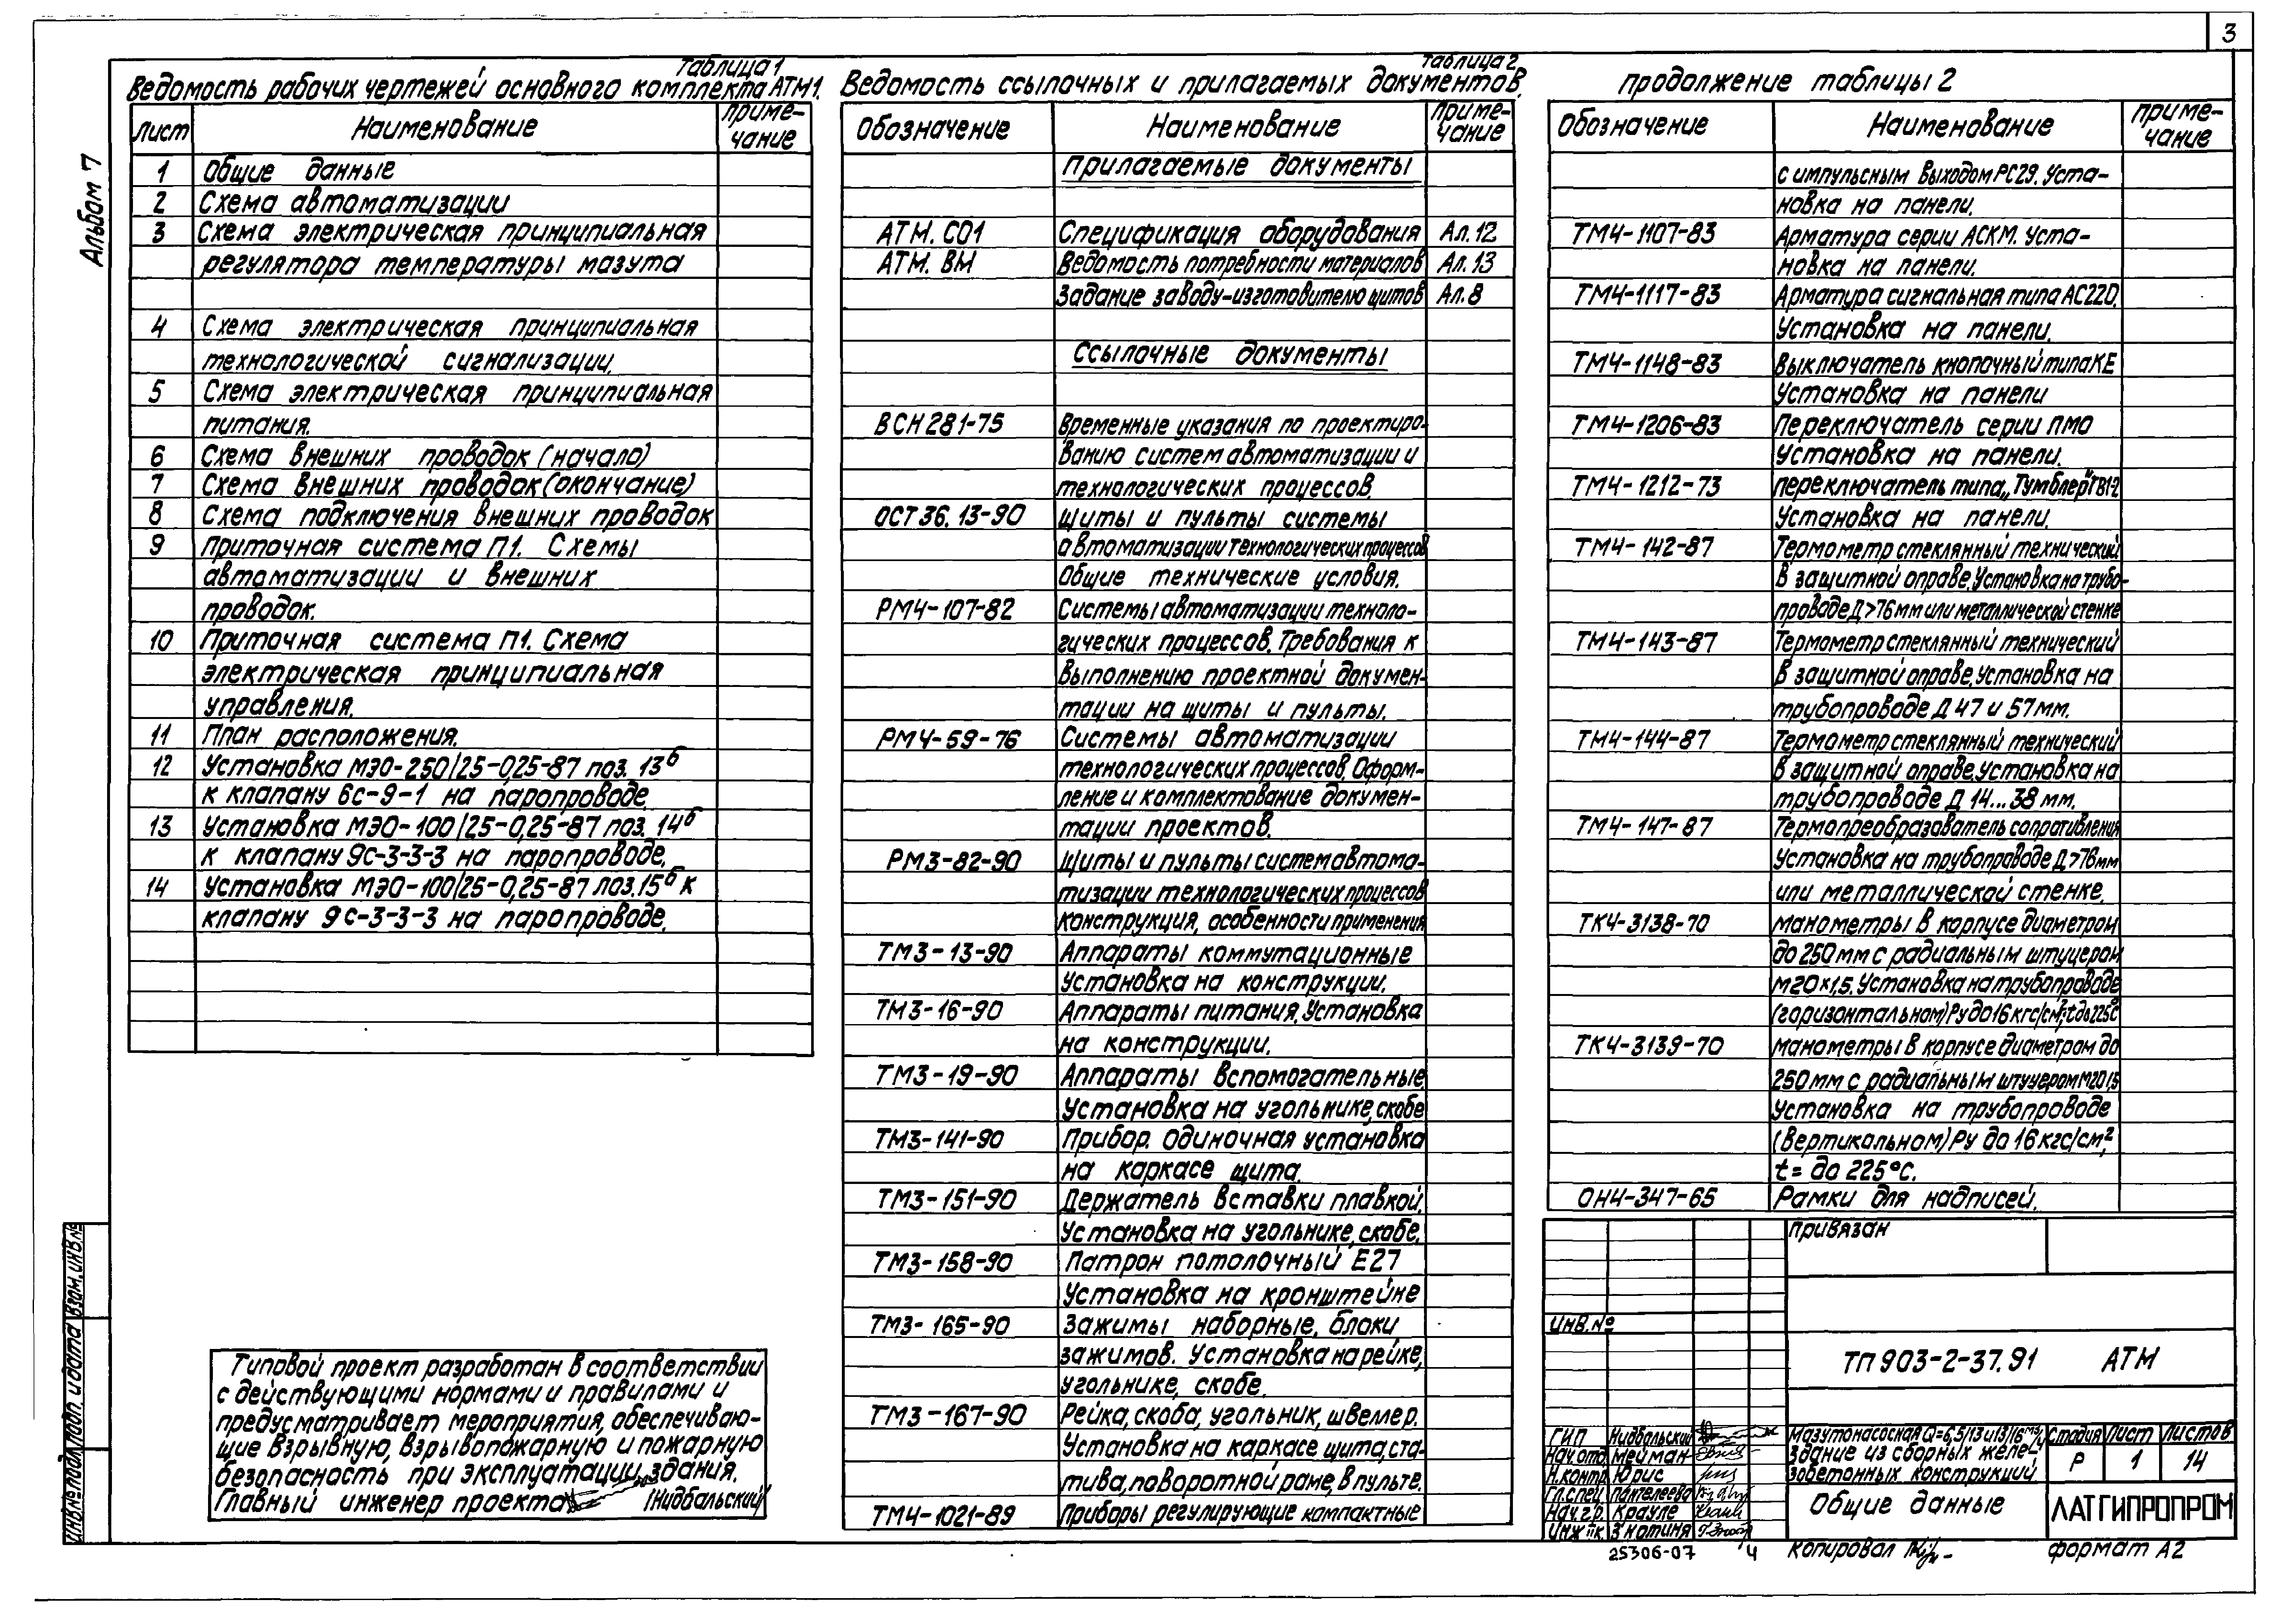 3
Альбом 7
Таблица 1
Ведомость рабочих чертежей основного комплекта АТМ1.
Лист Наименование Приме-
чание
1 Общие данные
2 Схема автоматизации
3 Схема электрическая принципиальная
регулятора температуры мазута
4 Схема электрическая принципиальная
технологической сигнализации.
5 Схема электрическая принципиальная
питания.
6 Схема внешних проводок (начало)
7 Схема внешних проводок (окончание)
8 Схема подключения внешних проводок
9 Приточная система П1. Схемы
автоматизации и внешних
проводок.
10 Приточная система П1. Схема
электрическая принципиальная
управления.
11 План расположения.
12 Установка МЭО-250/25-0,25-87 поз. 13б
к клапану 6с-9-1 на паропроводе.
13 Установка МЭО-100/25-0,25-87 поз. 14б
к клапану 9с-3-3-3 на паропроводе.
14 Установка МЭО-100/25-0,25-87 поз. 15б к
клапану 9с-3-3-3 на паропроводе.
Типовой проект разработан в соответствии
с действующими нормами и правилами и
предусматривает мероприятия, обеспечиваю-
щие взрывную, взрывопожарную и пожарную
безопасность при эксплуатации здания.
Главный инженер проекта (Нидбальский)
Таблица 2
Ведомость ссылочных и прилагаемых документов.
Обозначение Наименование Приме-
чание
Прилагаемые документы
АТМ. СО1 Спецификация оборудования Ал. 12
АТМ. ВМ Ведомость потребности материалов Ал. 13
Задание заводу-изготовителю щитов Ал. 8
Ссылочные документы
ВСН 281-75 Временные указания по проектиро-
ванию систем автоматизации и
технологических процессов.
ОСТ 36. 13-90 Щиты и пульты системы
автоматизации технологических процессов
Общие технические условия.
РМ4-107-82 Системы автоматизации техноло-
гических процессов. Требования к
выполнению проектной докумен-
тации на щиты и пульты.
РМ4-59-76 Системы автоматизации
технологических процессов. Оформ-
ление и комплектование докумен-
тации проектов.
РМ3-82-90 Щиты и пульты систем автома-
тизации технологических процессов
конструкция, особенности применения
ТМ3-13-90 Аппараты коммутационные
Установка на конструкции.
ТМ3-16-90 Аппараты питания. Установка
на конструкции.
ТМ3-19-90 Аппараты вспомогательные.
Установка на угольнике, скобе
ТМ3-141-90 Прибор. Одиночная установка
на каркасе щита.
ТМ3-151-90 Держатель вставки плавкой.
Установка на угольнике, скобе.
ТМ3-158-90 Патрон потолочный Е27
Установка на кронштейне
ТМ3-165-90 Зажимы наборные, блоки
зажимов. Установка на рейке,
угольнике, скобе.
ТМ3-167-90 Рейка, скоба, угольник, швеллер.
Установка на каркасе щита, ста-
тива, поворотной раме, в пульте.
ТМ4-1021-89 Приборы регулирующие компактные
Продолжение таблицы 2
Обозначение Наименование Приме-
чание
с импульсным выходом РС29. Уста-
новка на панели.
ТМ4-1107-83 Арматура серии АСКМ. Уста-
новка на панели.
ТМ4-1117-83 Арматура сигнальная типа АС220.
Установка на панели.
ТМ4-1148-83 Выключатель кнопочный типа КЕ
Установка на панели
ТМ4-1206-83 Переключатель серии ПМО
Установка на панели.
ТМ4-1212-73 переключатель типа „Тумблер" ТВ1-2
Установка на панели.
ТМ4-142-87 Термометр стеклянный технический
в защитной оправе. Установка на трубо-
проводе Д>76мм или металлической стенке
ТМ4-143-87 Термометр стеклянный технический
в защитной оправе. Установка на
трубопроводе Д 47 и 57мм.
ТМ4-144-87 Термометр стеклянный технический
в защитной оправе. Установка на
трубопроводе Д 14...38 мм.
ТМ4-147-87 Термопреобразователь сопротивления
Установка на трубопроводе Д>76мм
или металлической стенке.
ТК4-3138-70 манометры в корпусе диаметром
до 250мм с радиальным штуцером
М20×1,5. Установка на трубопроводе
(горизонтальном) Ру до 16 кгс/см², t до 225°С
ТК4-3139-70 манометры в корпусе диаметром до
250мм с радиальным штуцером М20 1,5
Установка на трубопроводе
(вертикальном) Ру до 16 кгс/см²,
t= до 225°С.
ОН4-347-65 Рамки для надписей.
Привязан
Инв. №
ТП 903-2-37.91 АТМ
ГИП Нидбальский
Нач. отд. Мейман
Н.контр. Юрис
Гл. спец. Пантелеева
Нач. гр. Крауле
Инж IIк. Знотиня
Мазутонасосная Q=6,5/13 и 13/16 м³/ч
Здание из сборных желе-
зобетонных конструкций.
Стадия Лист Листов
Р 1 14
Общие данные
ЛАТГИПРОПРОМ
25306-07 4 Копировал формат А2
Взам. инв. №
Подп. и дата
Инв. № подл.